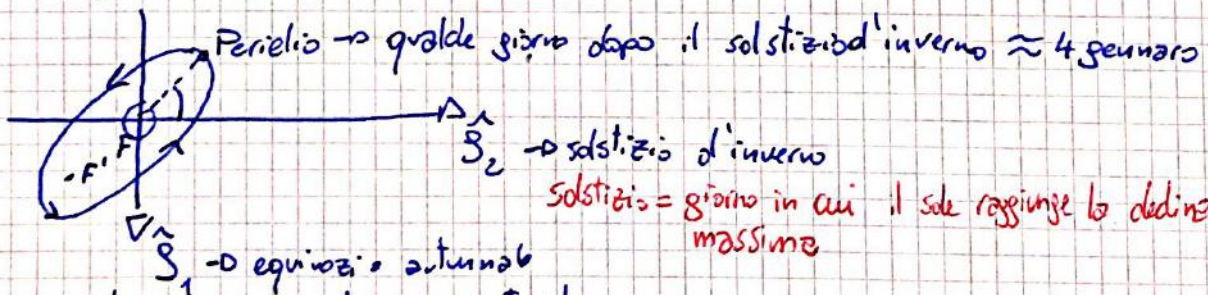 Perielio → qualche giorno dopo il solstizio d'inverno ≈ 4 gennaio
F
F'
Ŝ₂ → solstizio d'inverno
solstizio = giorno in cui il sole raggiunge la declina
massima
Ŝ₁ → equinozio autunnale